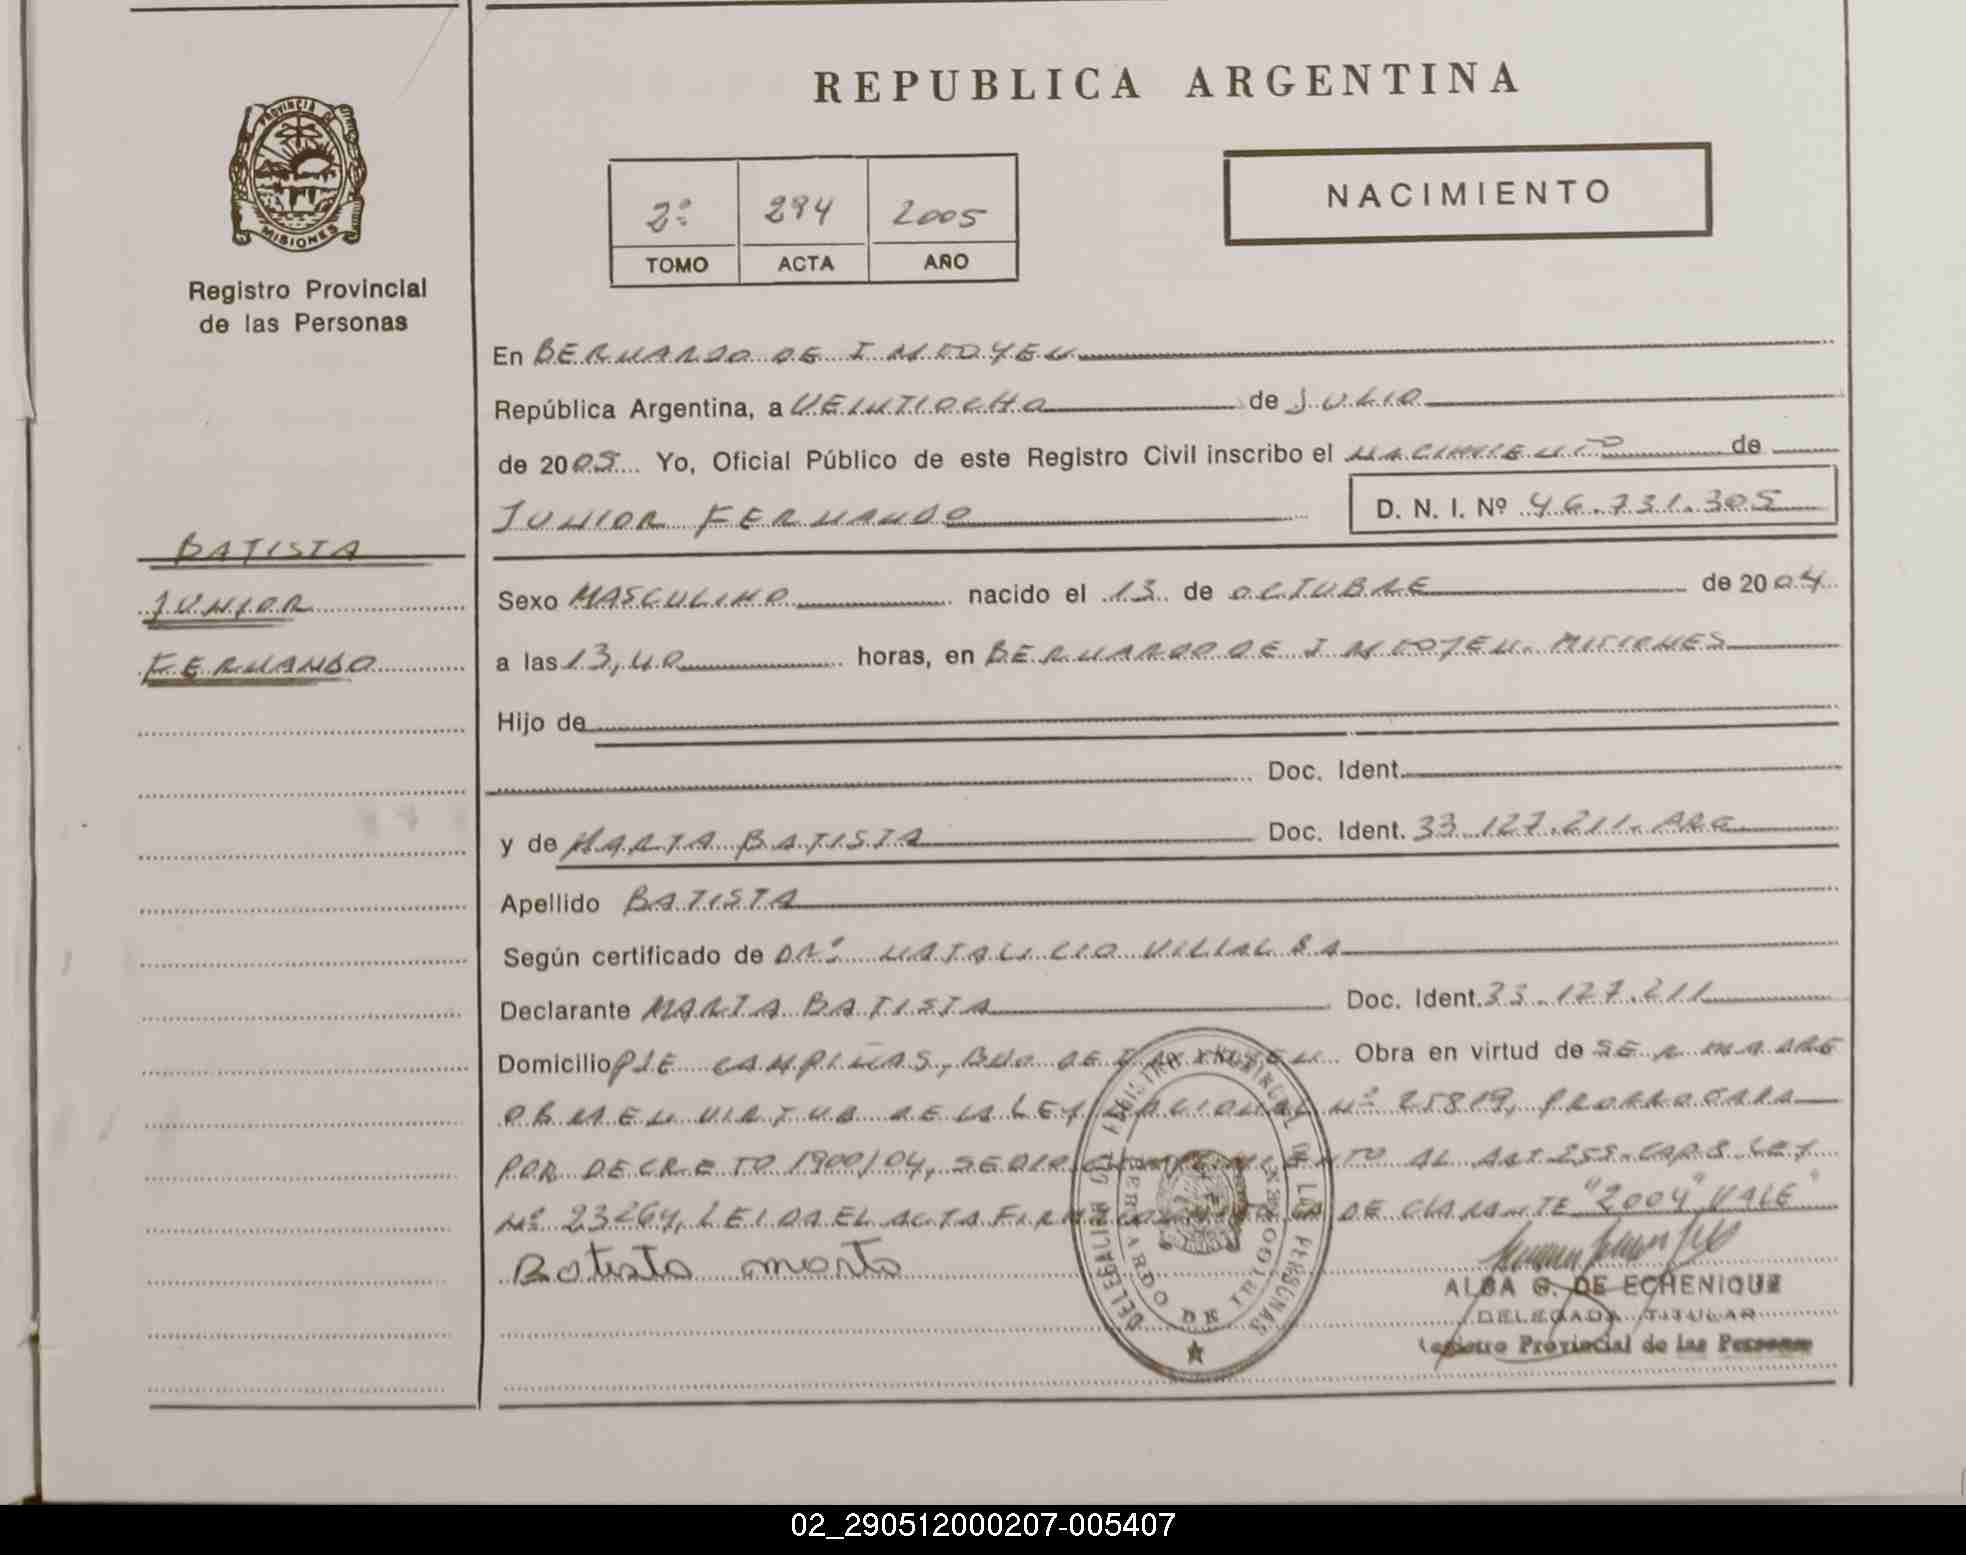 REPUBLICA ARGENTINA
PROVINCIA DE
MISIONES
Registro Provincial
de las Personas
2º 294 2005
TOMO ACTA AÑO
NACIMIENTO
En BERNARDO DE IRIGOYEN
República Argentina, a VEINTIOCHO de JULIO
de 2005 Yo, Oficial Público de este Registro Civil inscribo el NACIMIENTO de
JUNIOR FERNANDO D. N. I. Nº 46.731.305
BATISTA
JUNIOR
FERNANDO
Sexo MASCULINO nacido el 13 de OCTUBRE de 2004
a las 13,40 horas, en BERNARDO DE IRIGOYEN. MISIONES
Hijo de
Doc. Ident.
y de MARTA BATISTA Doc. Ident. 33.127.211. ARG
Apellido BATISTA
Según certificado de DRº NATALICIO VILLALBA
Declarante MARTA BATISTA Doc. Ident. 33.127.211
Domicilio PJE CAMPIÑAS, BDO DE IRIGOYEN Obra en virtud de SER MADRE
OBRA EN VIRTUD DE LA LEY NACIONAL Nº 25819, PRORROGADA
POR DECRETO 1900/04, SE DIO CUMPLIMIENTO AL ART 255. CAP 8 LEY
Nº 23264, LEIDA EL ACTA FIRMA CONMIGO LA DECLARANTE "2004" VALE"
Batista marta
DELEGACION REGISTRO PROVINCIAL DE LAS PERSONAS
BERNARDO DE IRIGOYEN
ALBA G. DE ECHENIQUE
DELEGADA TITULAR
Registro Provincial de las Personas
02_290512000207-005407